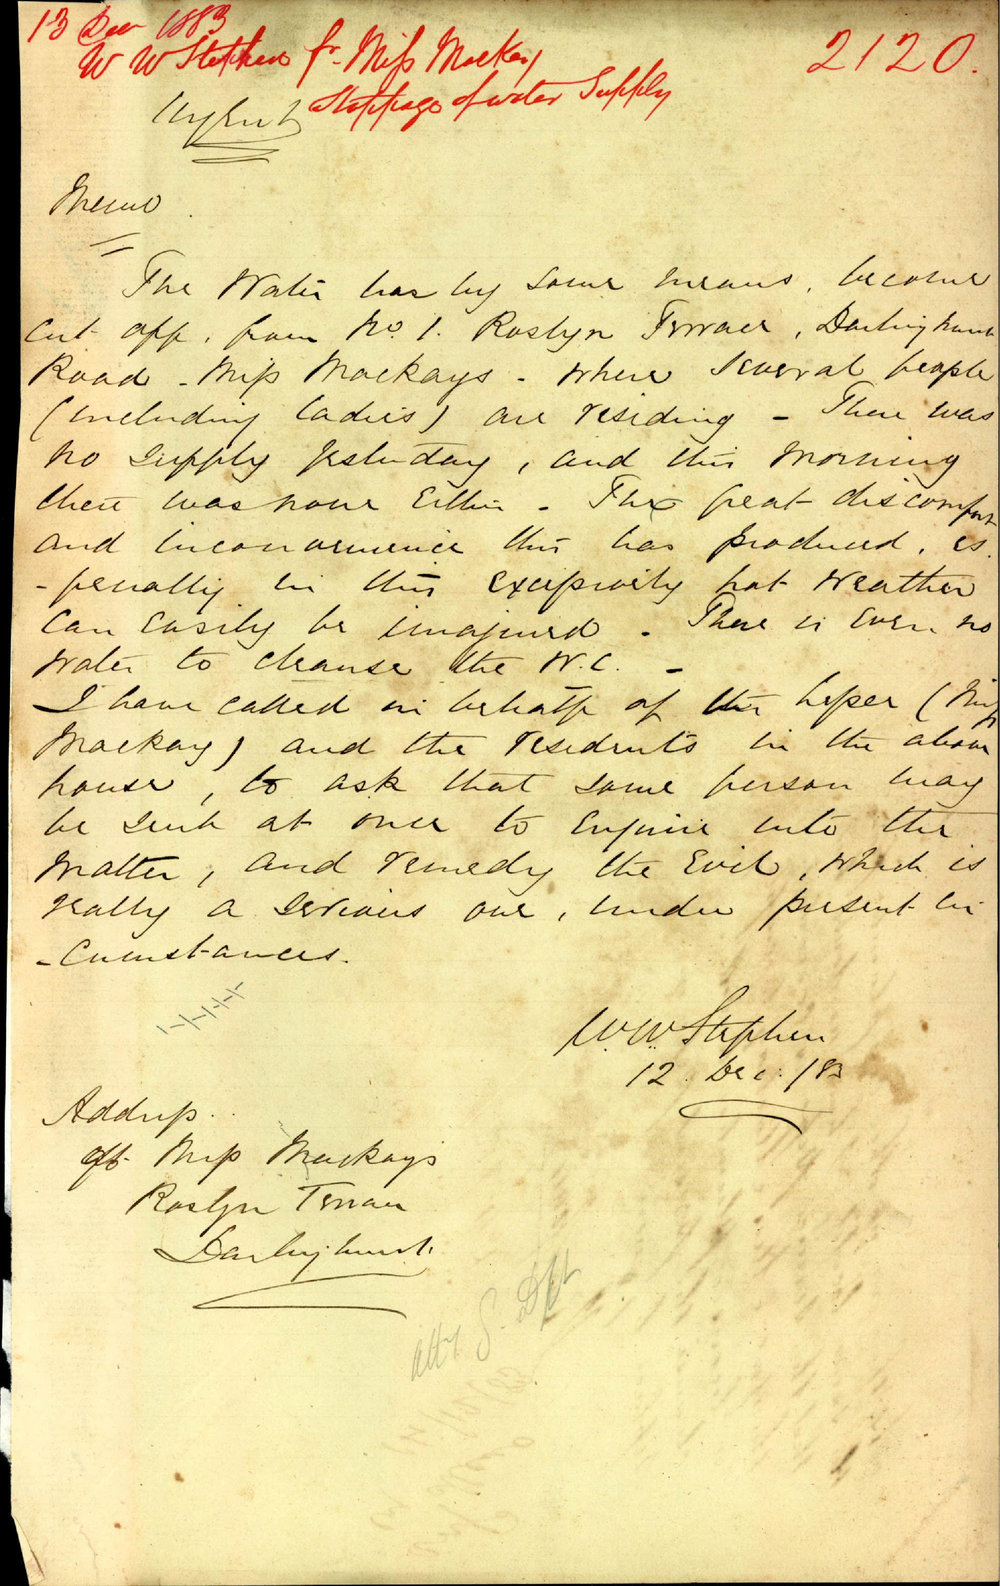 13 Dec 1883
W W Stephen fr Miss Mackay
Stoppage of water Supply
2120.
Urgent
Memo
The Water has by some means, become
cut off, from No. 1. Roslyn Terrace, Darlinghurst
Road - Miss Mackays - where several people
(including ladies) are residing - There was
no supply yesterday, and this morning
there was none either - The great discomfort
and inconvenience this has produced, es
-pecially in this excessively hot weather
can easily be imagined. There is even no
water to cleanse the W.C. -
I have called on behalf of the lessee (Miss
Mackay) and the residents in the above
house, to ask that some person may
be sent at once to enquire into the
matter, and remedy the evil, which is
really a serious one, under present cir
-cumstances.
W.W. Stephen
12. Dec. /83
Address.
Miss Mackays
Roslyn Terrace
Darlinghurst.